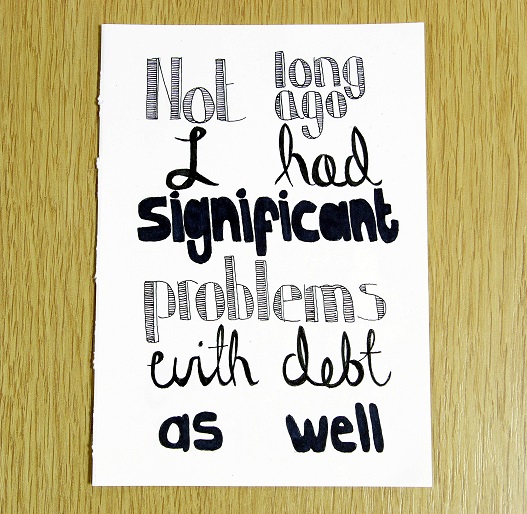 Not long
ago
I had
significant
problems
with debt
as well